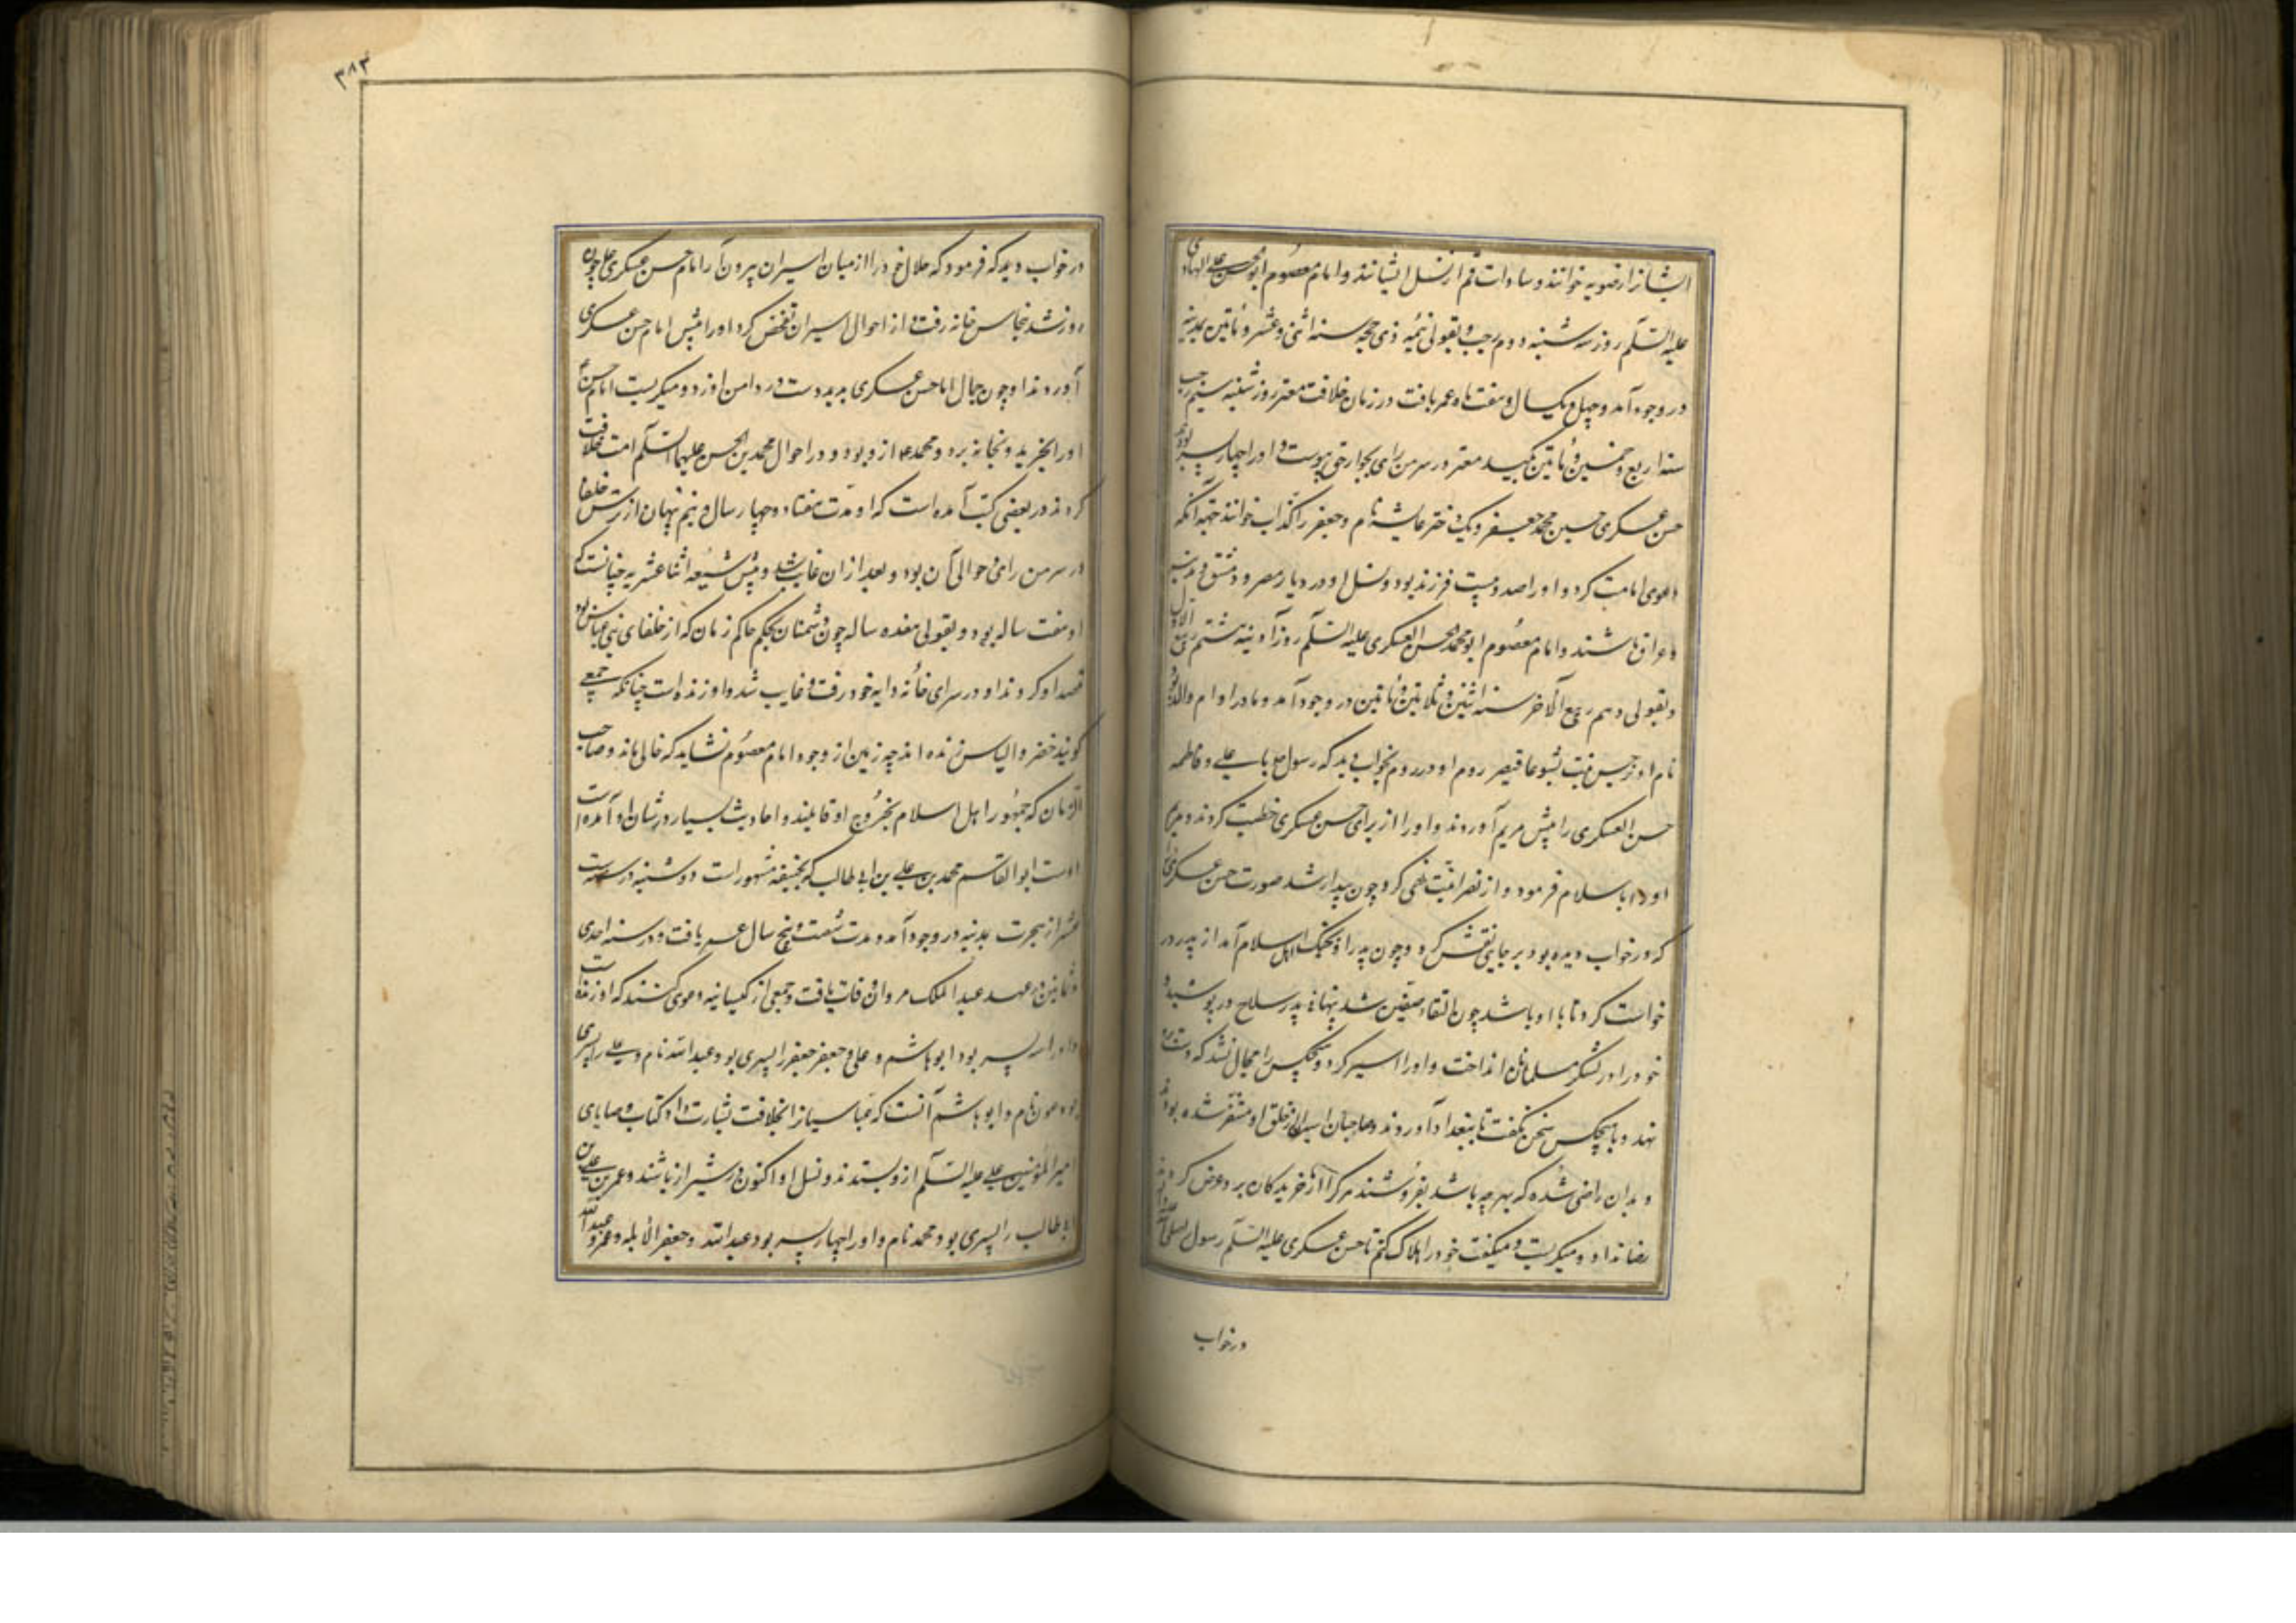 ایشانرا رضویه خوانند و سادات قم از نسل ایشانند و امام معصوم ابوالحسن علی الهادی
علیه السلم روز سه شنبه دوم رجب و بقولی نیمه ذی حجه سنه اثنی و عشر و مأتین بمدینه
در وجود آمد و چهل و یکسال و هفت ماه عمر یافت در زمان خلافت معتز روز شنبه سیم رجب
سنه اربع و خمسین و مأتین بکید معتز در سر من رای بجوار حق پیوست و او را چهار پسر بودند
حسن عسکری حسین محمد جعفر و یک دختر عایشه نام و جعفر را کذاب خوانند جهة آنکه
دعوی امامت کرد و او را صد و بیست فرزند بود و نسل او در دیار مصر و دمشق و مدینه
و عراق باشند و امام معصوم ابو محمد الحسن العسکری علیه السلم روز آدینه هشتم ربیع الاول
و بقولی دهم ربیع الآخر سنه اثنین و ثلاثین و مأتین در وجود آمد و مادر او ام والد بود
نام او نرجس بنت یشوعا قیصر روم او در روم بخواب دید که رسول صلع با علی و فاطمه
حسن العسکری را پیش مریم آوردند و او را از برای حسن عسکری خطبت کردند و مریم
او را باسلام فرمود و از نصرانیت نهی کرد چون بیدار شد صورت حسن عسکری
که در خواب دیده بود بر جایی نقش کرد و چون پدر او بجنک اهل اسلام آمد از پدر در
خواست کرد تا با او باشد چون التقاء صفین شد پنهان از پدر سلاح در پوشیده
خود را در لشکر مسلمانان انداخت و او را اسیر کرد و هیچکس را مجال نشد که دست برو
نهد و با هیچکس سخن نکفت تا ببغداد آوردند و صاحبان اسیر از خلق او متنفر شده بودند
و بدان راضی شده که بهرچه باشد بفروشند هرکرا از خریدکان برو عرض کردند
رضا نداد و میکریست و میکفت خود را هلاک کنم تا حسن عسکری علیه السلم رسول صلی الله
در خواب
۳۸۳
در خواب دید که فرمود که حلال خود را از میان اسیران بیرون آر امام حسن عسکری علی چون
روز شد نخاس خانه رفت و از احوال اسیران تفحص کرد او را پیش امام حسن عسکری
آوردند او چون جمال امام حسن عسکری بدید دست در دامن او زد و میکریست امام حسن
او را بخرید و بخانه برد و محمد ازو بود و در احوال محمد بن الحسن علیهما السلم امت خلافت
کردند در بعضی کتب آمده است که او مدت هفتاد و چهار سال و نیم پنهان از ترس خلفا
در سر من رای و حوالی آن بود و بعد از ان غایب شد و پیش شیعه اثنا عشریه چنانست که
او هفت ساله بود و بقولی هفده ساله چون دشمنان بحکم حاکم زمان که از خلفای بنی عباس بود
قصد او کردند او در سرای خانه دایه خود رفت و غایب شد و او زنده است چنانکه جمعی
کویند خضر و الیاس زنده اند چه زمین از وجود امام معصوم نشاید که خالی ماند و صاحب
الزمان که جمهور اهل اسلام بخروج او قایلند و احادیث بسیار در شان او آمده است
اوست ابو القاسم محمد بن علی بن ابی طالب که بحنیفه مشهور است دوشنبه در سنه ست
عشر از هجرت بمدینه در وجود آمد و مدت شصت و پنج سال عمر یافت و در سنه احدی
و ثمانین در عهد عبد الملک مروان وفات یافت و جمعی از کیسانیه دعوی کنند که او زنده است
و او را سه پسر بود ابو هاشم و علی و جعفر جعفر را پسری بود عبد الله نام و علی را پسری
بود عون نام و ابو هاشم آنست که عباسیان را بخلافت بشارت داد و کتاب وصایای
امیر المؤمنین علی علیه السلم ازو بستدند و نسل او اکنون در شیراز باشند و عمر بن علی بن
ابی طالب را پسری بود محمد نام و او را چهار پسر بود عبد الله و جعفر الأبله و عمر و عبد الله